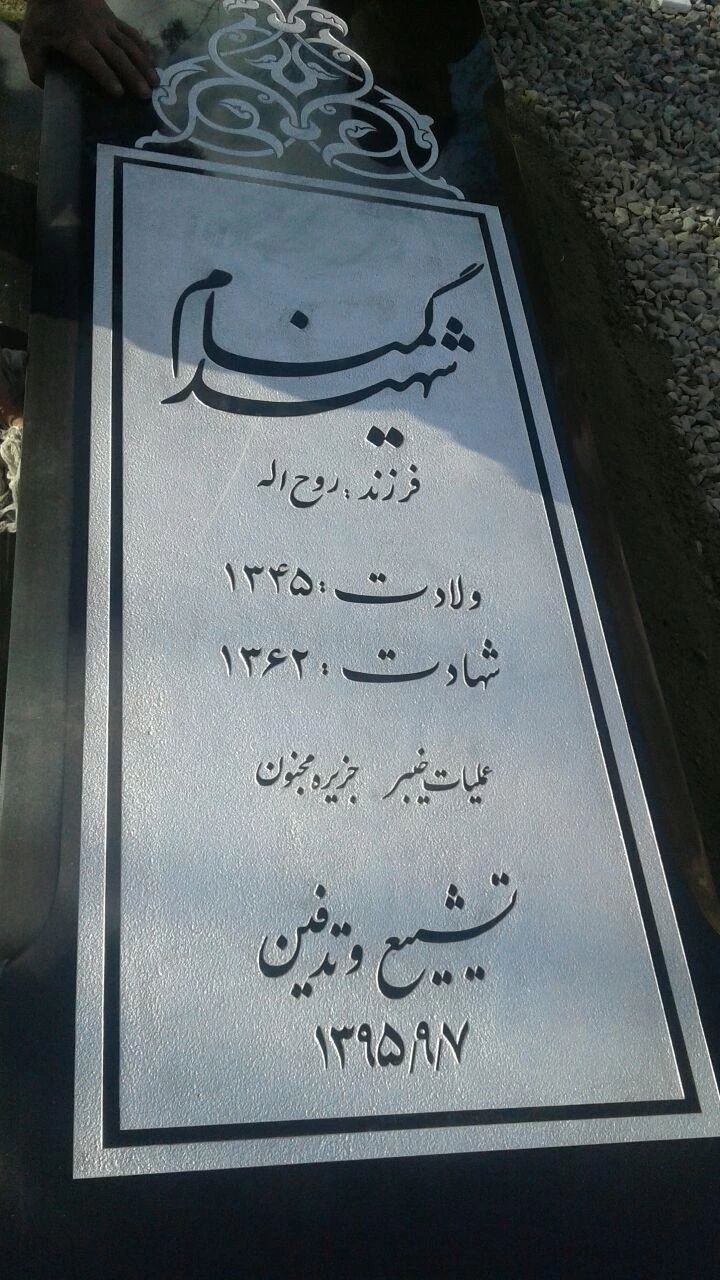 شهید گمنام
فرزند : روح اله
ولادت : ۱۳۴۵
شهادت : ۱۳۶۲
عملیات خیبر جزیره مجنون
تشییع و تدفین
۱۳۹۵/۹/۷